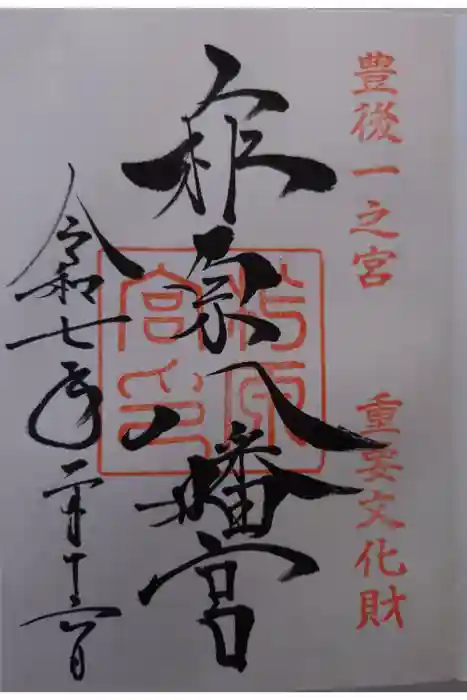 豊後一之宮　重要文化財
柞原八幡宮
令和七年二月十六日
柞原
宮印